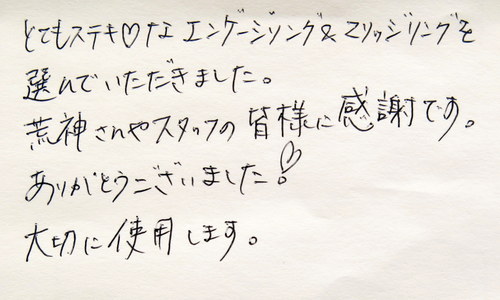 とてもステキ♡な エンゲージリング&マリッジリングを
選んでいただきました。
荒神さんやスタッフの皆様に感謝です。
ありがとうございました♡
大切に使用します。